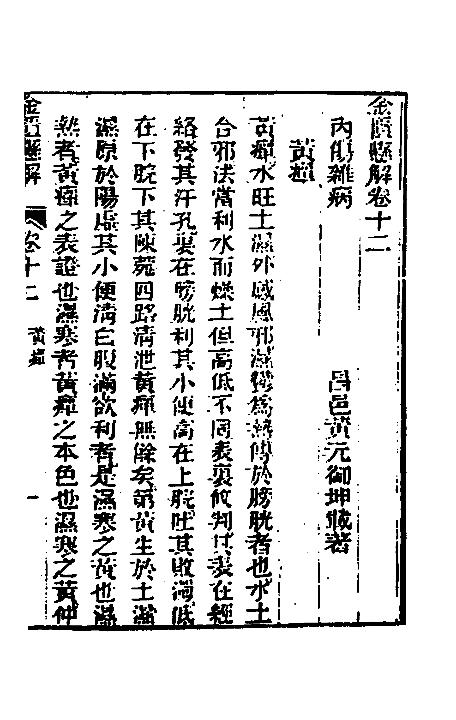 金匱懸解卷十二
內傷雜病
昌邑黃元御坤載著
黃疸
黃疸水旺土濕外感風邪濕鬱為熱傳於膀胱者也水土
合邪法當利水而燥土但高低不同表裏攸判其表在經
絡發其汗孔裏在膀胱利其小便高在上脘吐其敗濁低
在下脘下其陳菀四路清泄黃癉無餘矣第黃生於土濕
濕原於陽虛其小便清白腹滿欲利者是濕寒之黃也濕
熱者黃癉之表證也濕寒者黃癉之本色也濕寒之黃仲
金匱懸解 卷十二 黃疸 一